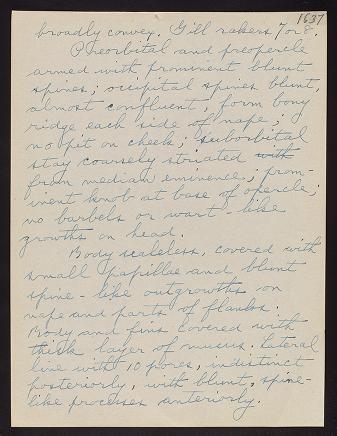 1637
broadly convex. Gill rakers 7 or 8.
Preorbital and preopercle
armed with prominent blunt
spines; occipital spines blunt,
almost confluent, form bony
ridge each side of nape;
no pit on cheek; suborbital
stay coarsely striated with
from median eminence; prom-
inent knob at base of opercle;
no barbels or wart-like
growths on head.
Body scaleless, covered with
small papillae and blunt
spine-like outgrowths on
nape and parts of flanks.
Body and fins covered with
thick layer of mucus. Lateral
line with 10 pores, indistinct
posteriorly, with blunt, spine-
like processes anteriorly.